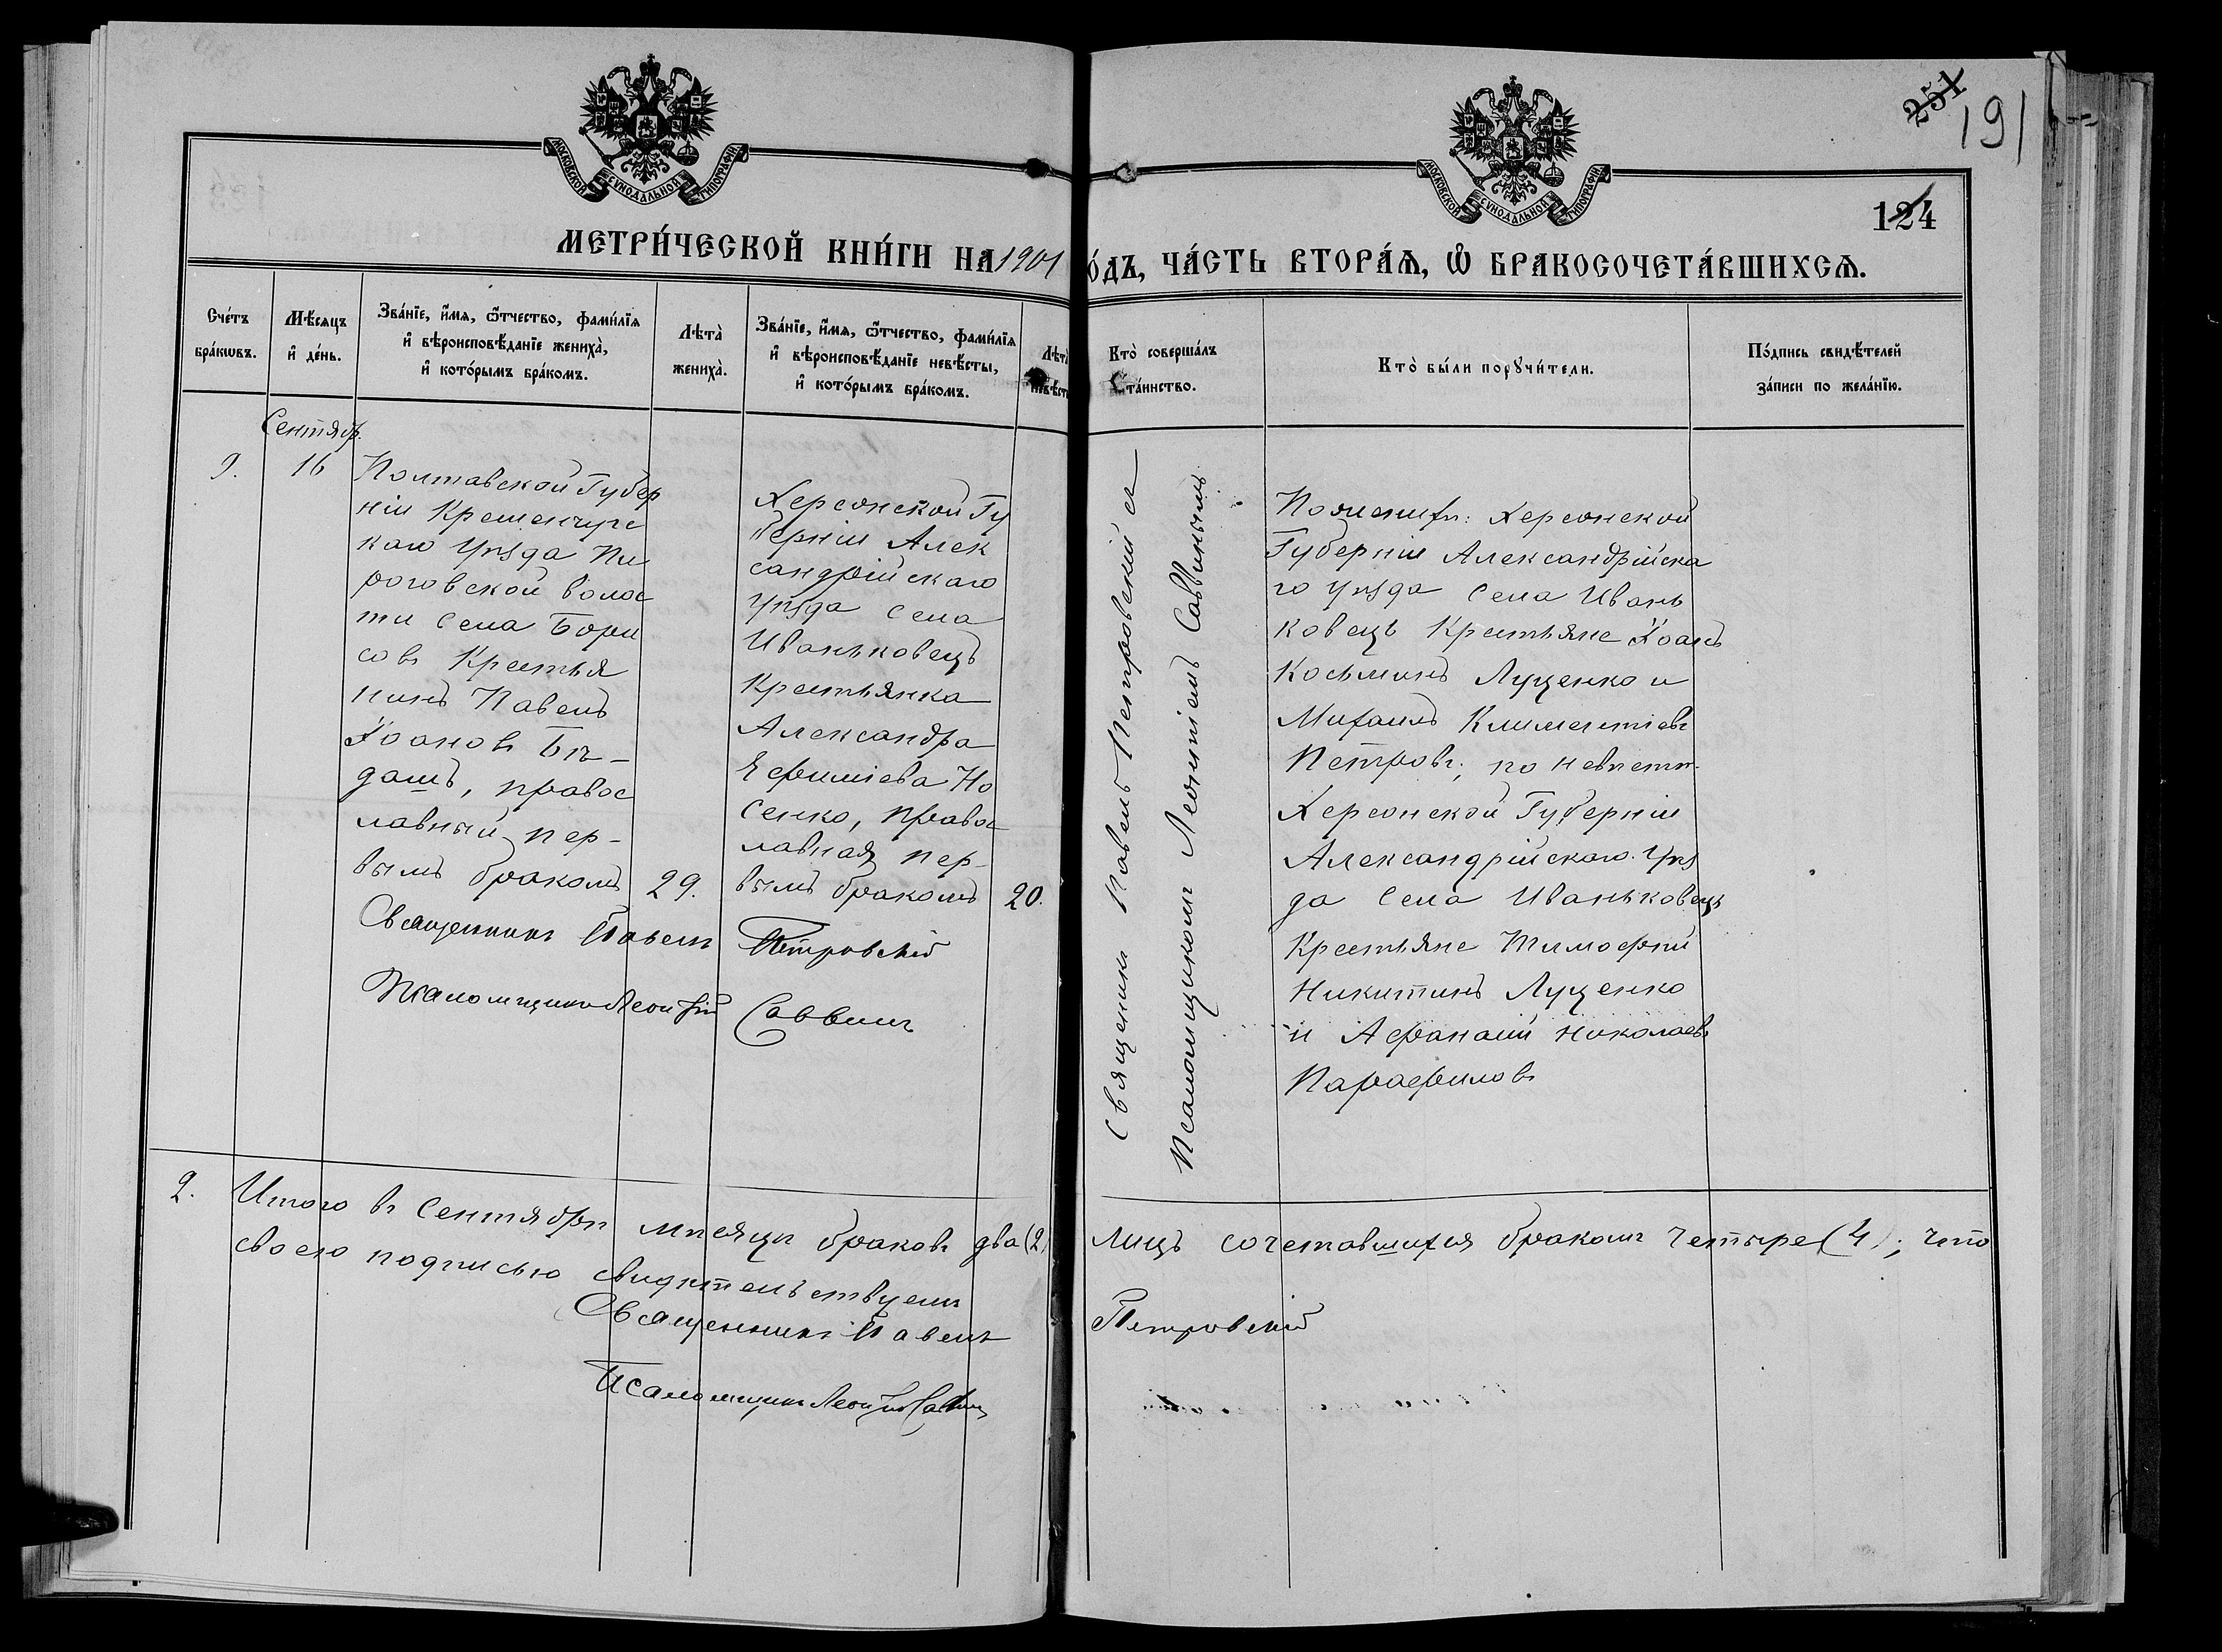 251
191
124
МОСКОВСКОЙ СѴНОДАЛЬНОЙ ТИПОГРАФІИ
МОСКОВСКОЙ СѴНОДАЛЬНОЙ ТИПОГРАФІИ
МЕТРИ́ЧЕСКОЙ КНИ́ГИ НА 1901 О́ДЪ, ЧА́СТЬ ВТОРА́Ѧ, Ѽ БРАКОСОЧЕТА́ВШИХСѦ.
Сче́тъ
бра́кѡвъ.
Мѣ́сѧцъ
и҆ де́нь.
Зва́нїе, и҆́мѧ, ѻ҆́тчество, фами́лїѧ
и҆ вѣроисповѣ́данїе жениха̀,
и҆ кото́рымъ бра́комъ.
Лѣта̀
жениха̀.
Зва́нїе, и҆́мѧ, ѻ҆́тчество, фами́лїѧ
и҆ вѣроисповѣ́данїе невѣ́сты,
и҆ кото́рымъ бра́комъ.
Лѣта̀
невѣст
Кто̀ соверша́лъ
Ста́инство.
Кто̀ бы́ли порꙋчи́тели.
По́дпись свидѣ́телей
за́писи по жела́нїю.
Сентябр.
9.
16
Полтавской Губер
ніи Кременчугс
каго Уѣзда Пи
роговской волос
ти Села Бори
совъ Крестья
нинъ Павелъ
Іоановъ Бѣ-
дашъ, правос
лавный, пер-
вымъ бракомъ
29.
Херсонской Гу
берніи Алек
сандрійскаго
Уѣзда Села
Иваньковецъ
Крестьянка
Александра
Ефиміева Но
сенко, правос
лавная, пер-
вымъ бракомъ
20.
Священникъ Павелъ Петровскій
Псаломщикъ Леонтій Саввинъ
Священникъ Павелъ Петровскій съ
Псаломщикомъ Леонтіемъ Саввинымъ.
По жениху: Херсонской
Губерніи Александрійска
го Уѣзда Села Ивань
ковецъ Крестьяне Іоанъ
Косьминъ Луценко и
Михаилъ Климентіевъ
Петровъ; по невѣстѣ-
Херсонской Губерніи
Александрійскаго Уѣз
да Села Иваньковецъ
Крестьяне Тимофей
Никитинъ Луценко
и Афанасій Николаевъ
Парафиловъ
2.
Итого въ Сентябрѣ мѣсяцѣ браковъ два (2) Лицъ сочетавшихся бракомъ четыре (4); что
своею подписью свидѣтельствуемъ
Священникъ Павелъ Петровскій
Псаломщикъ Леонтій Саввинъ